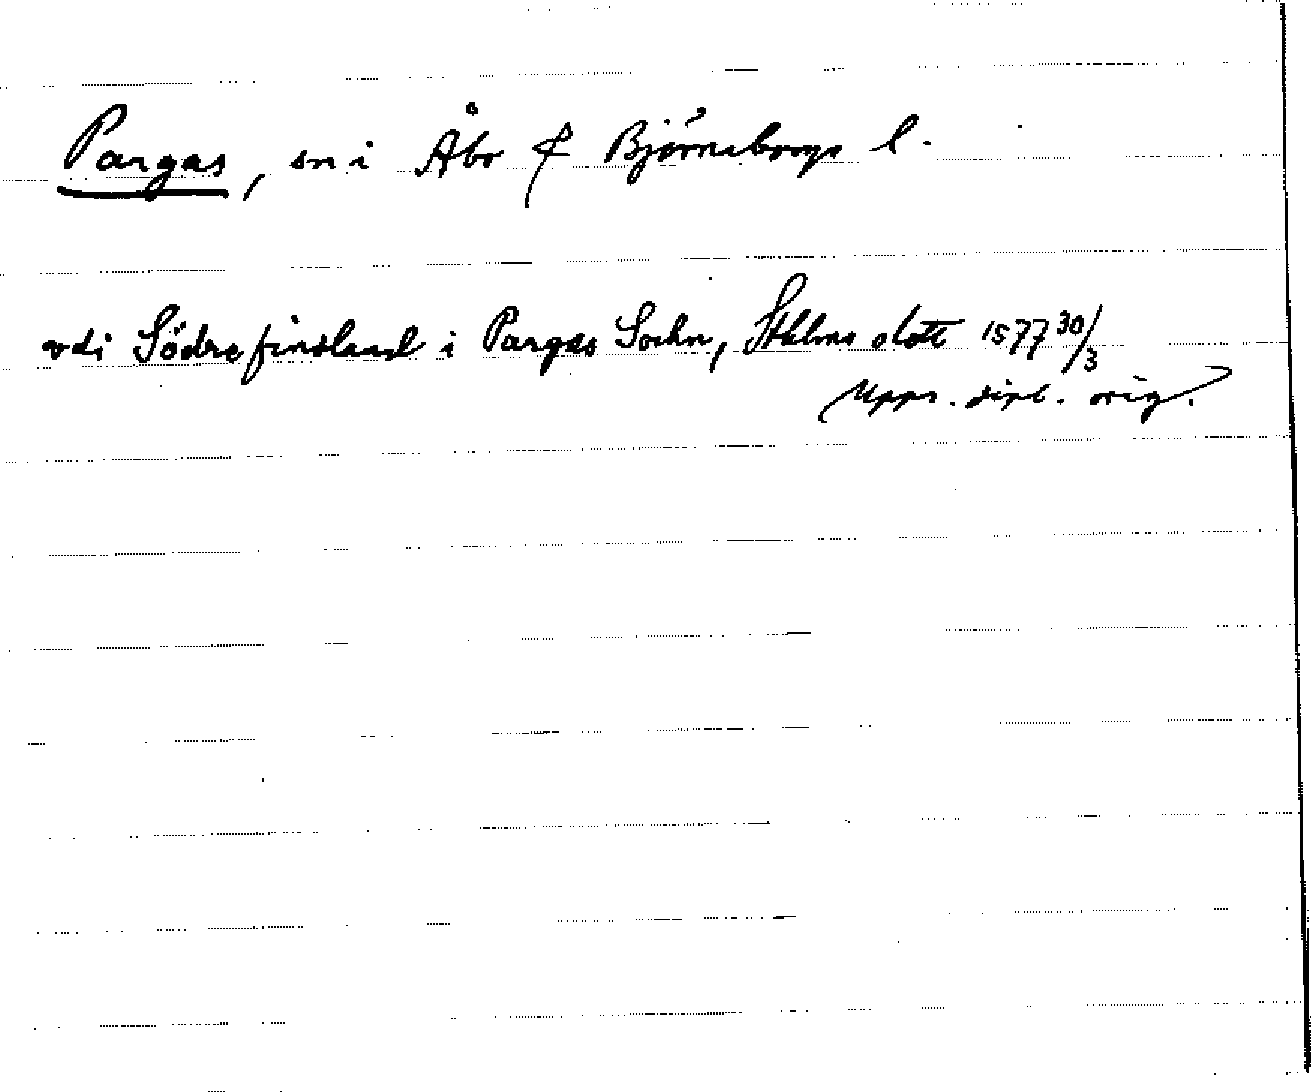 Pargas, sn i Åbo & Björneborgs l.
vdi Södre finsland i Pargas Sochn, Sthlms slott 1577 30/3
Upps. dipl. orig.